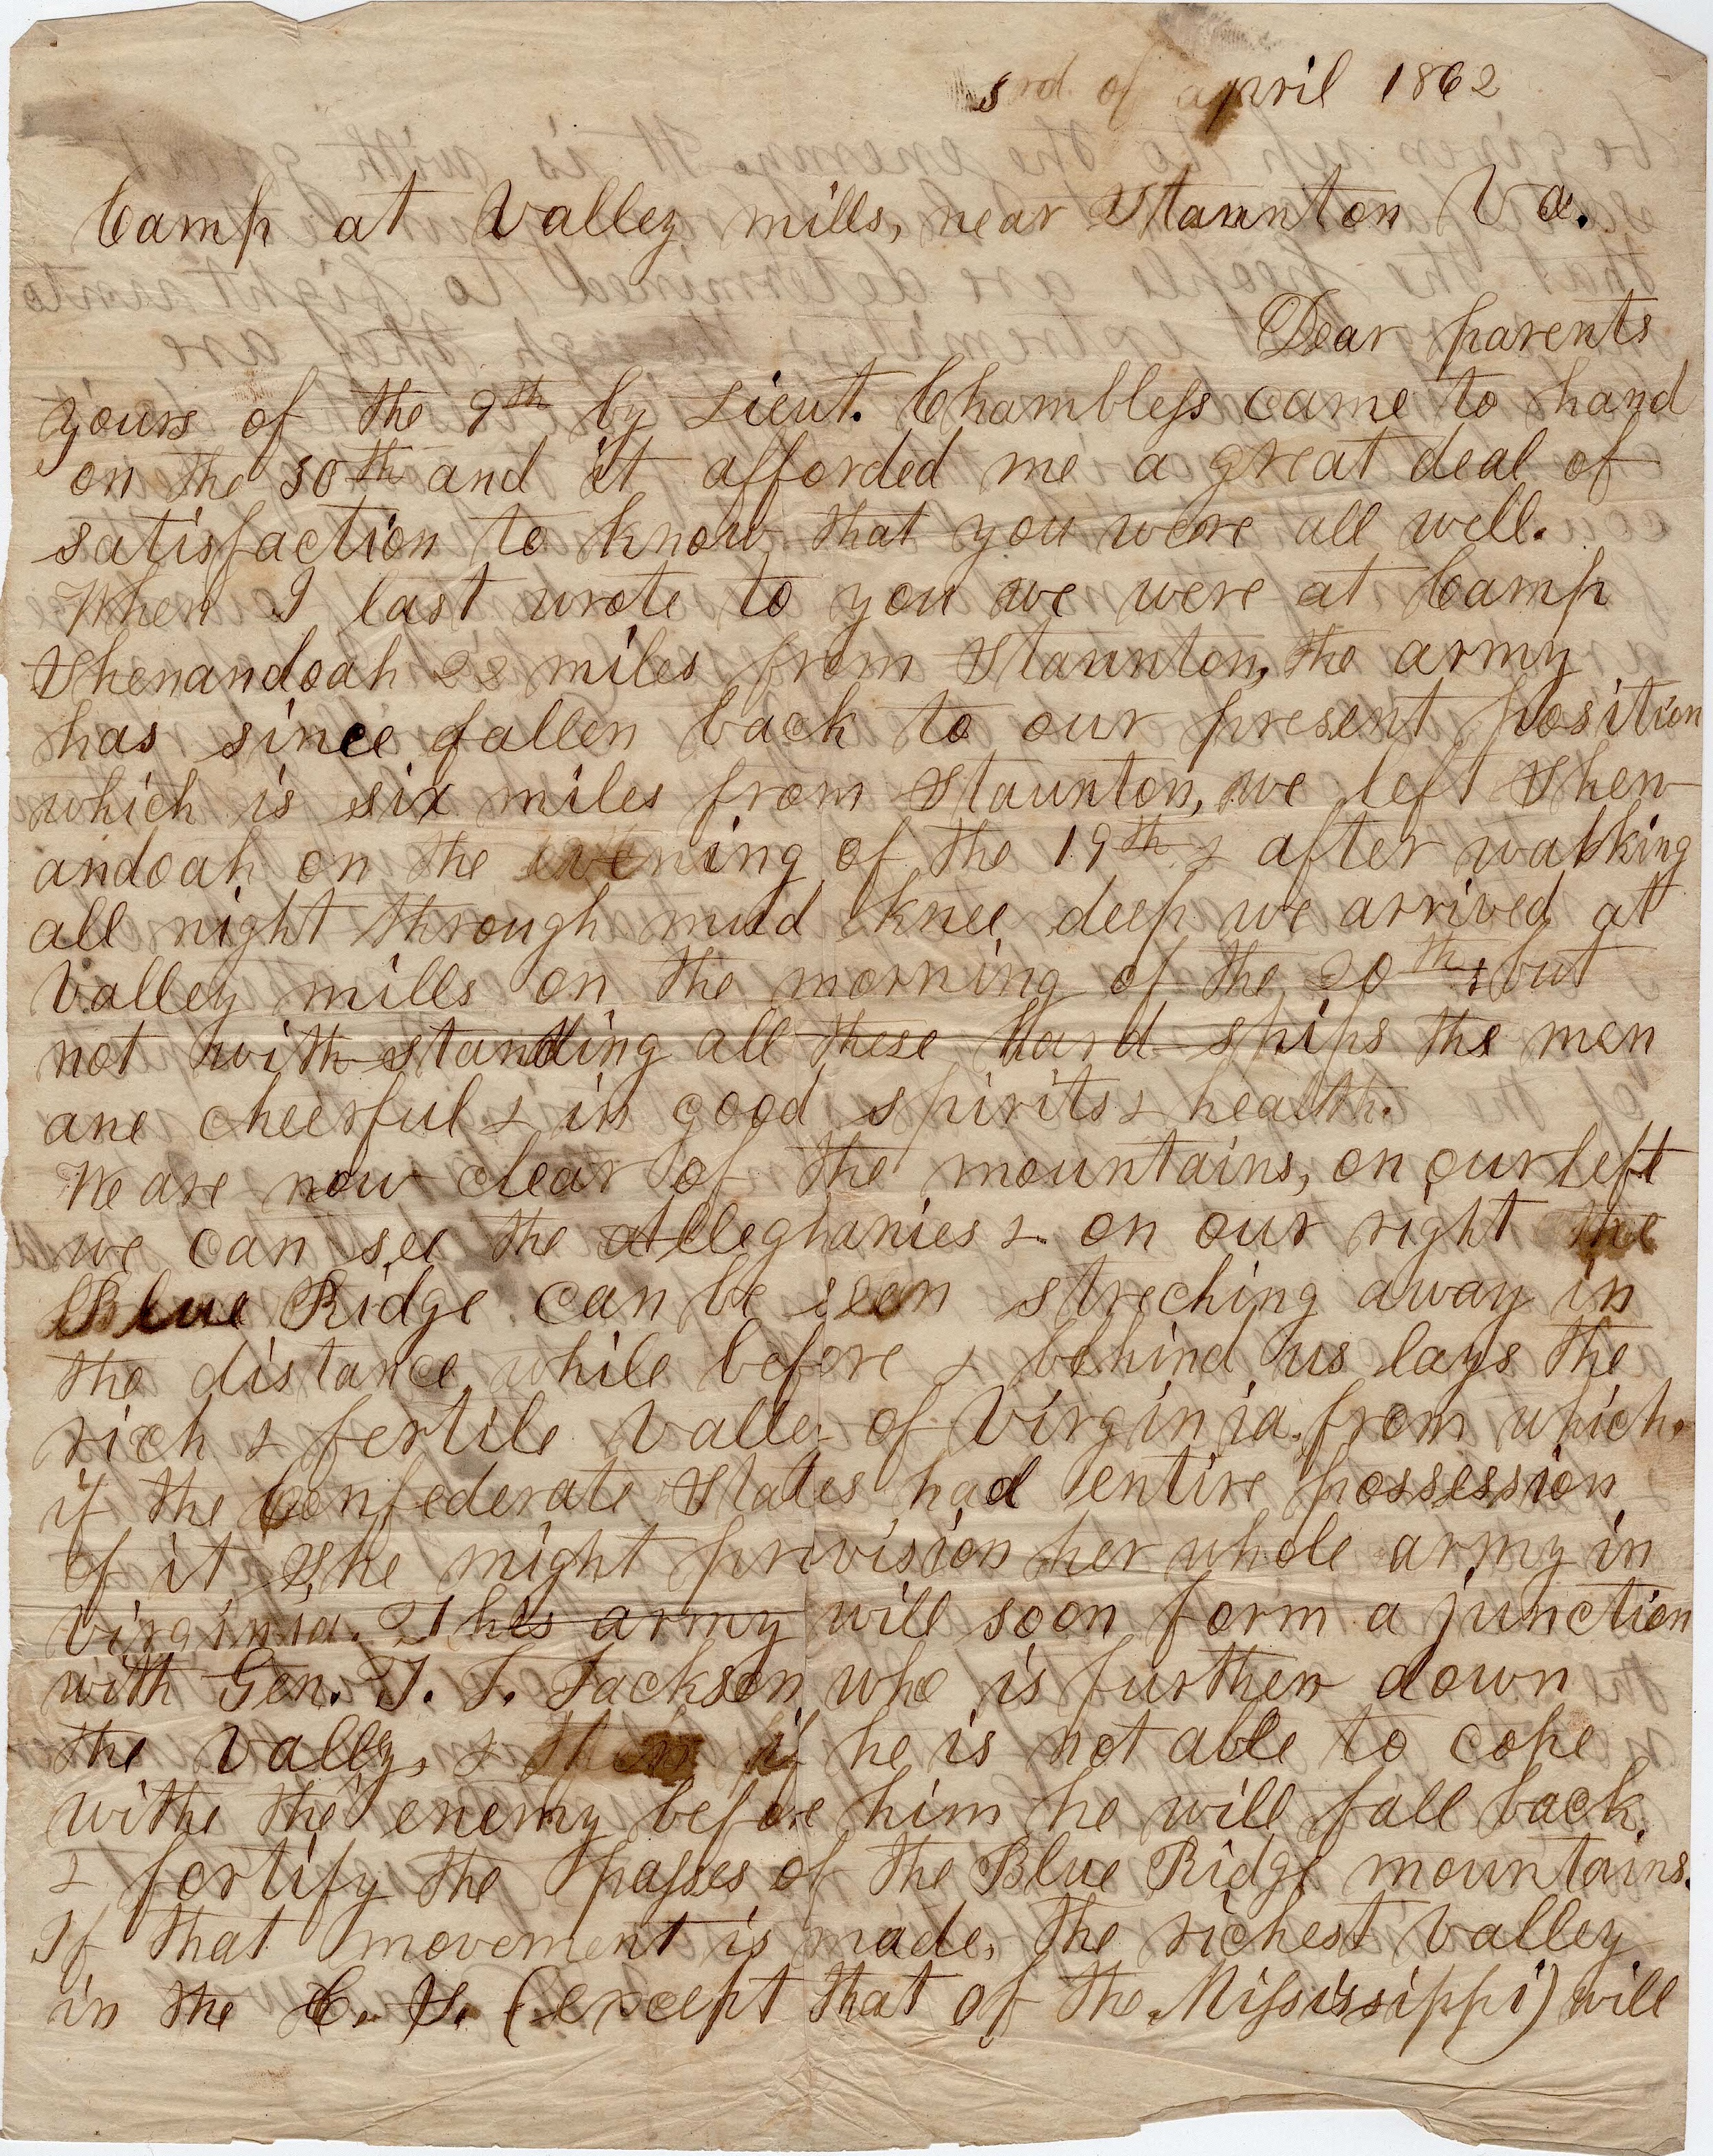 3rd of april 1862
Camp at Valley mills, near Staunton Va.
Dear parents
yours of the 9th by Lieut. Chambless came to hand
on the 30th and it afforded me a great deal of
satisfaction to know that you were all well.
When I last wrote to you we were at Camp
Shenandoah 22 miles from Staunton, the army
has since fallen back to our present position
which is six miles from Staunton, we left Shen-
andoah on the evening of the 19th & after walking
all night through mud knee deep we arrived at
Valley mills on the morning of the 20th & but
not with standing all these hard ships the men
are cheerful & in good spirits & health.
We are now clear of the mountains, on our left
we can see the Alleghanies & on our right the
Blue Ridge can be seen streching away in
the distance while before & behind us lays the
rich & fertile Valley of Virginia. from which.
if the Confederate States had entire possession
of it She might provision her whole army in
Virginia. This army will soon form a junction
with Gen. T. J. Jackson who is further down
the Vally, & then if he is not able to cope
withe the enemy before him he will fall back.
& fortify the passes of the Blue Ridge mountains.
If that movement is made, the richest Valley
in the C. S. (except that of the Mississippi) will